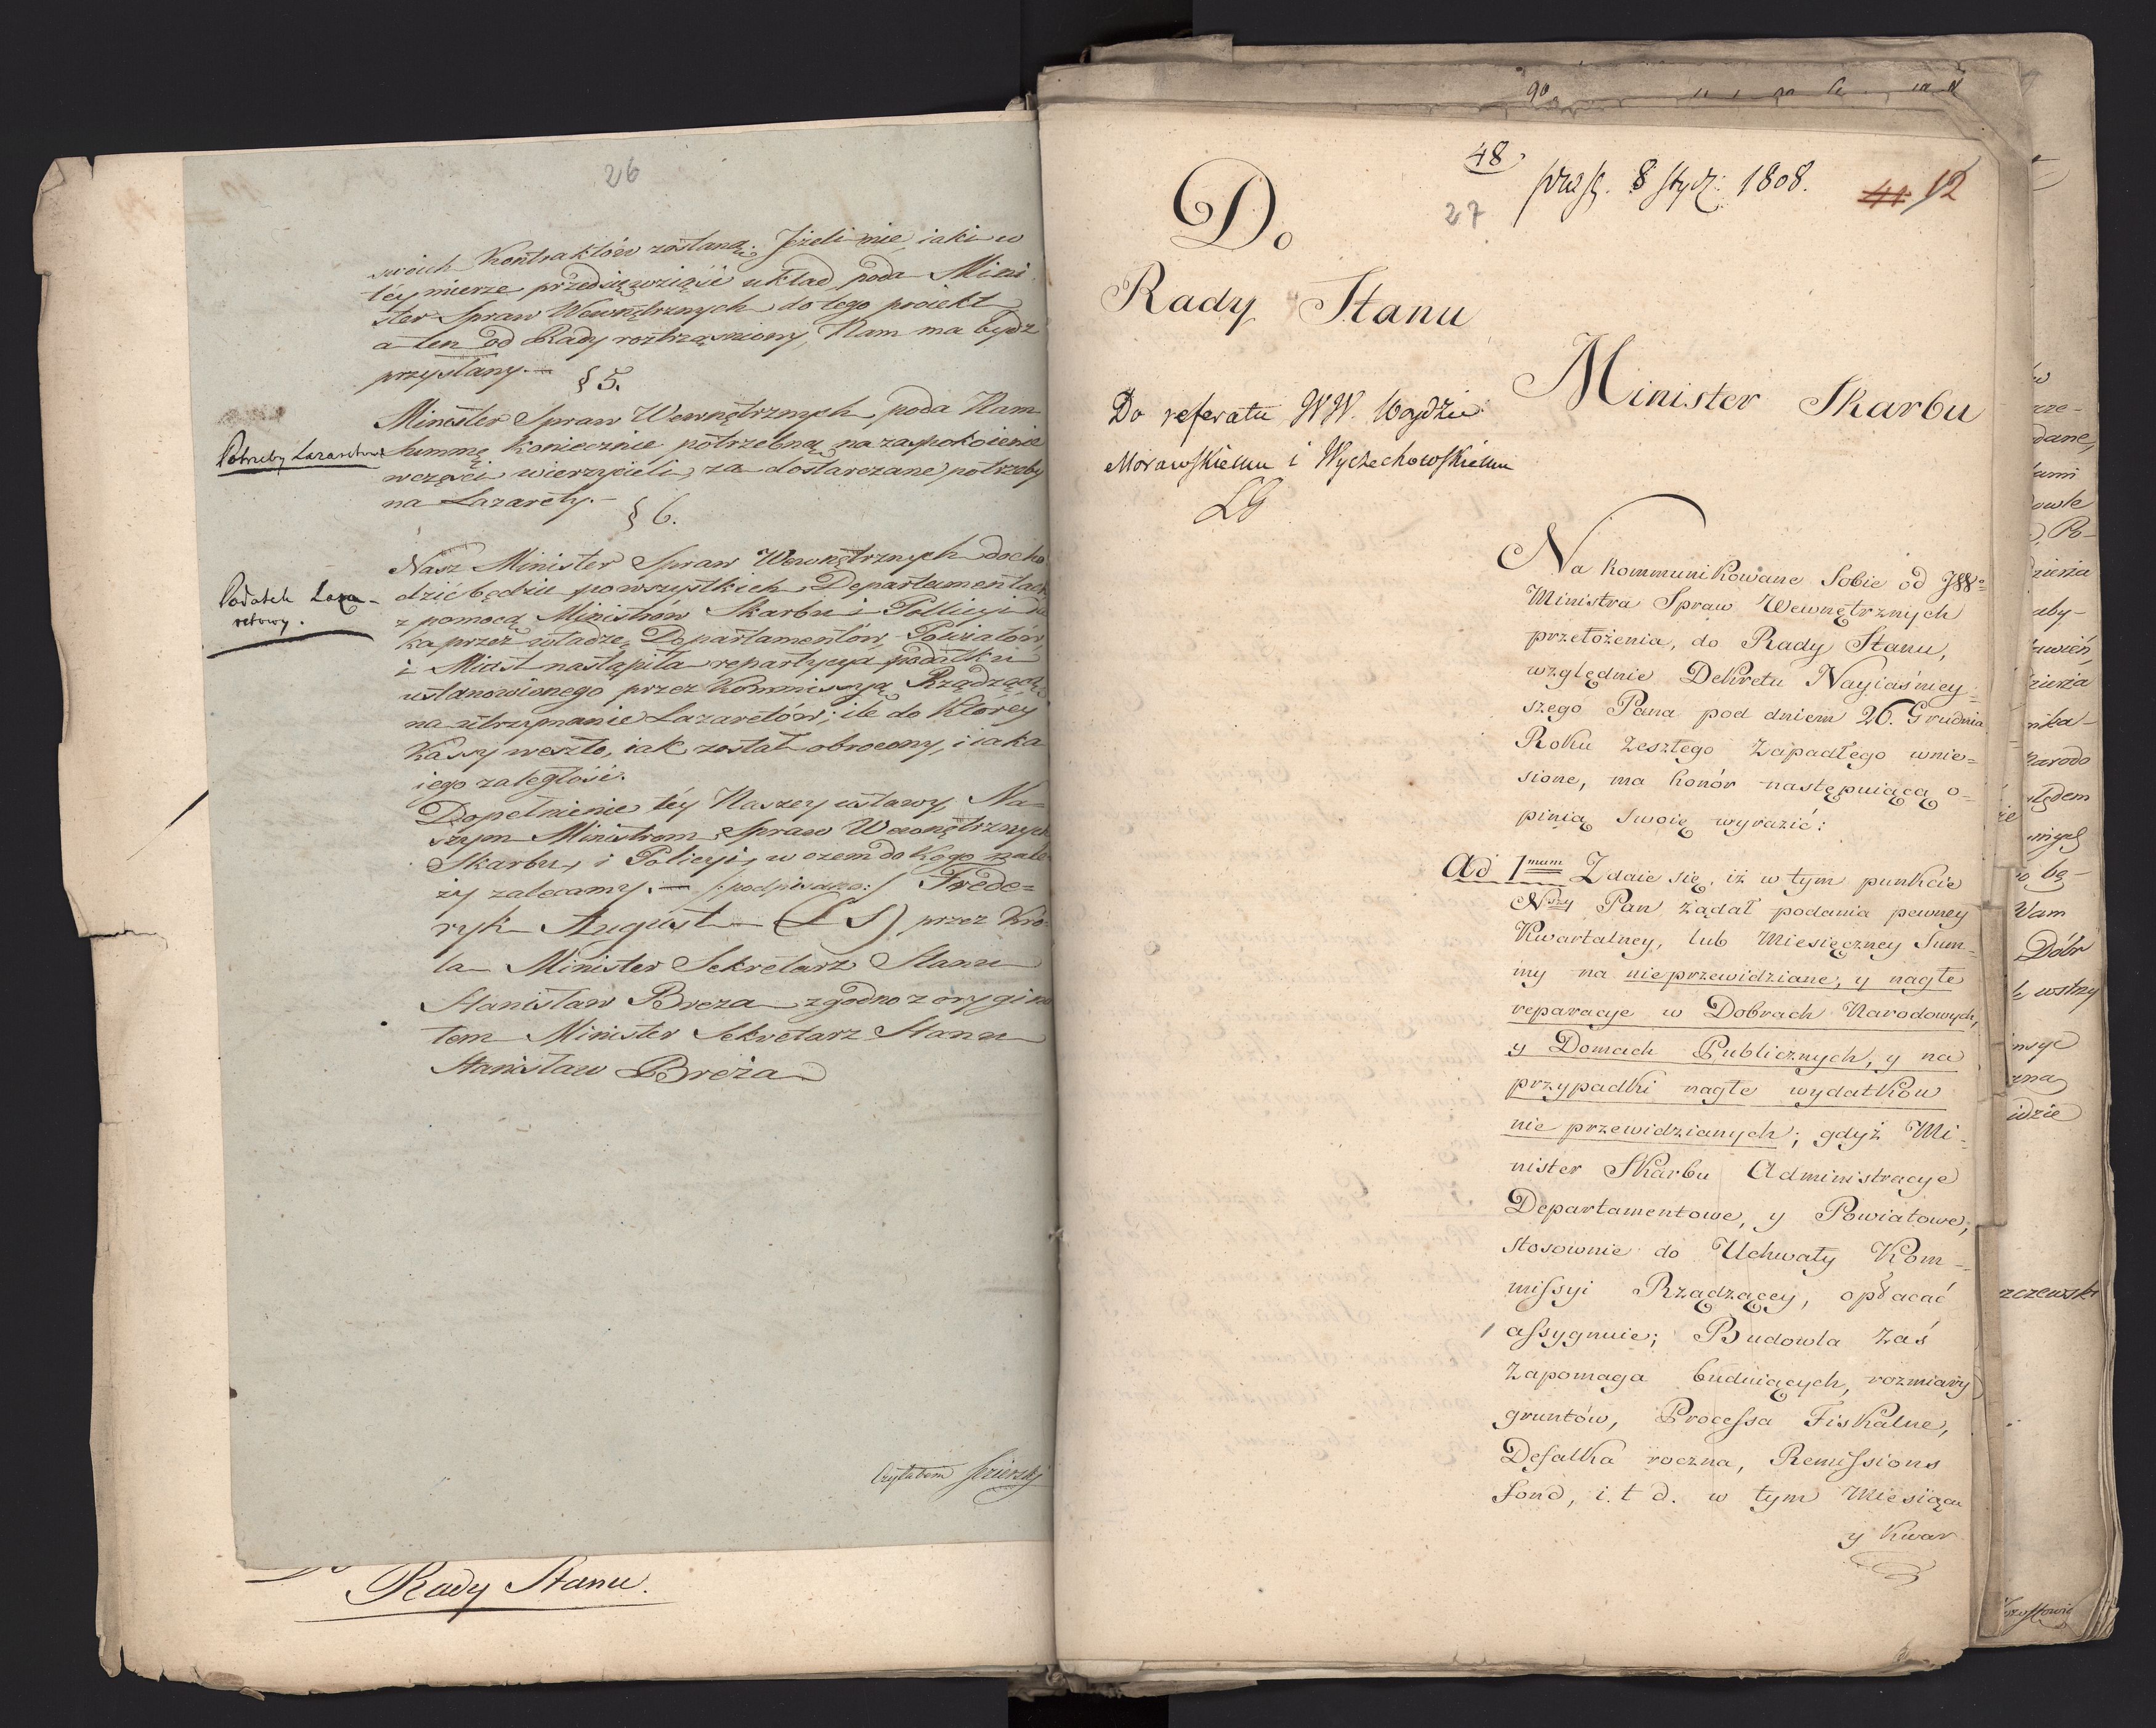 26
swoich Kontraktów zostaną. Jeżeli nie iaki w
téy mierze przedsięwziąść układ, poda Mini
ster Spraw Wewnętrznych do tego proiekt
a ten od Rady roztrząśniony, Nam ma bydź
przysłany.—
§ 5.
Potrzeby Lazaretowe
Minister Spraw Wewnętrznych, poda Nam
summę koniecznie potrzebną na zaspokoienie
wczęści wierzycieli, za dostarczane potrzeby
na Lazarety.—
§ 6.
Podatek Laza-
retowy.
Nasz Minister Spraw Wewnętrznych docho
dzić będzie po wszystkich Departamentach
z pomocą Ministrów Skarbu i Policyi
ka przez władze Departamentów, Powiatów,
i Miast nastąpiła repartycya podatku
ustanowionego przez Kommissyą Rządzącą
na utrzymanie Lazaretów; ile do którey
Kassy weszło, iak został obrocony, i iaka
iego zaległość.
Dopełnienie téy Naszey ustawy, Na-
szym Ministrom, Spraw Wewnętrznych
Skarbu, i Policyi, w czem do kogo nale
ży zalecamy.— /:podpisano:/ Frede=
ryk August (L S) przez Kró-
la Minister Sekretarz Stanu
Stanisław Breza zgodno z orygina
łem Minister Sekretarz Stanu
Stanisław Breza
Czytałem
Rady Stanu.
90
48
27
8 stycz: 1808.
44 12
Do
Rady Stanu
Minister Skarbu
Do referatu WW.
Morawskiemu i Wyczechowskiemu
LG
Na kommunikowane Sobie od JW°
Ministra Spraw Wewnętrznych
przełożenia, do Rady Stanu,
względnie Dekretu Nayiaśniey=
szego Pana pod dniem 26. Grudnia
Roku zeszłego zapadłego wnie=
sione, ma honór następuiącą o=
pinią swoię wyrazić:
Ad 1mum Zdaie się, iż w tym punkcie
Nszy Pan żądał podania pewney
Kwartalney, lub Miesięczney Sum=
my na nieprzewidziane, y nagłe
reparacye w Dobrach Narodowych,
y Domach Publicznych, y na
przypadki nagłe wydatków
nie przewidzianych; gdyż Mi-
nister Skarbu Administracye
Departamentowe, y Powiatowe,
stosownie do Uchwały Kom=
missyi Rządzącey, opłacać
assygnuie; Budowla zaś
zapomaga buduiących, rozmiary
gruntów, Processa Fiskalne,
Defalka roczna, Remissions
fond, i. t d. w tym Miesiącu
y Kwar